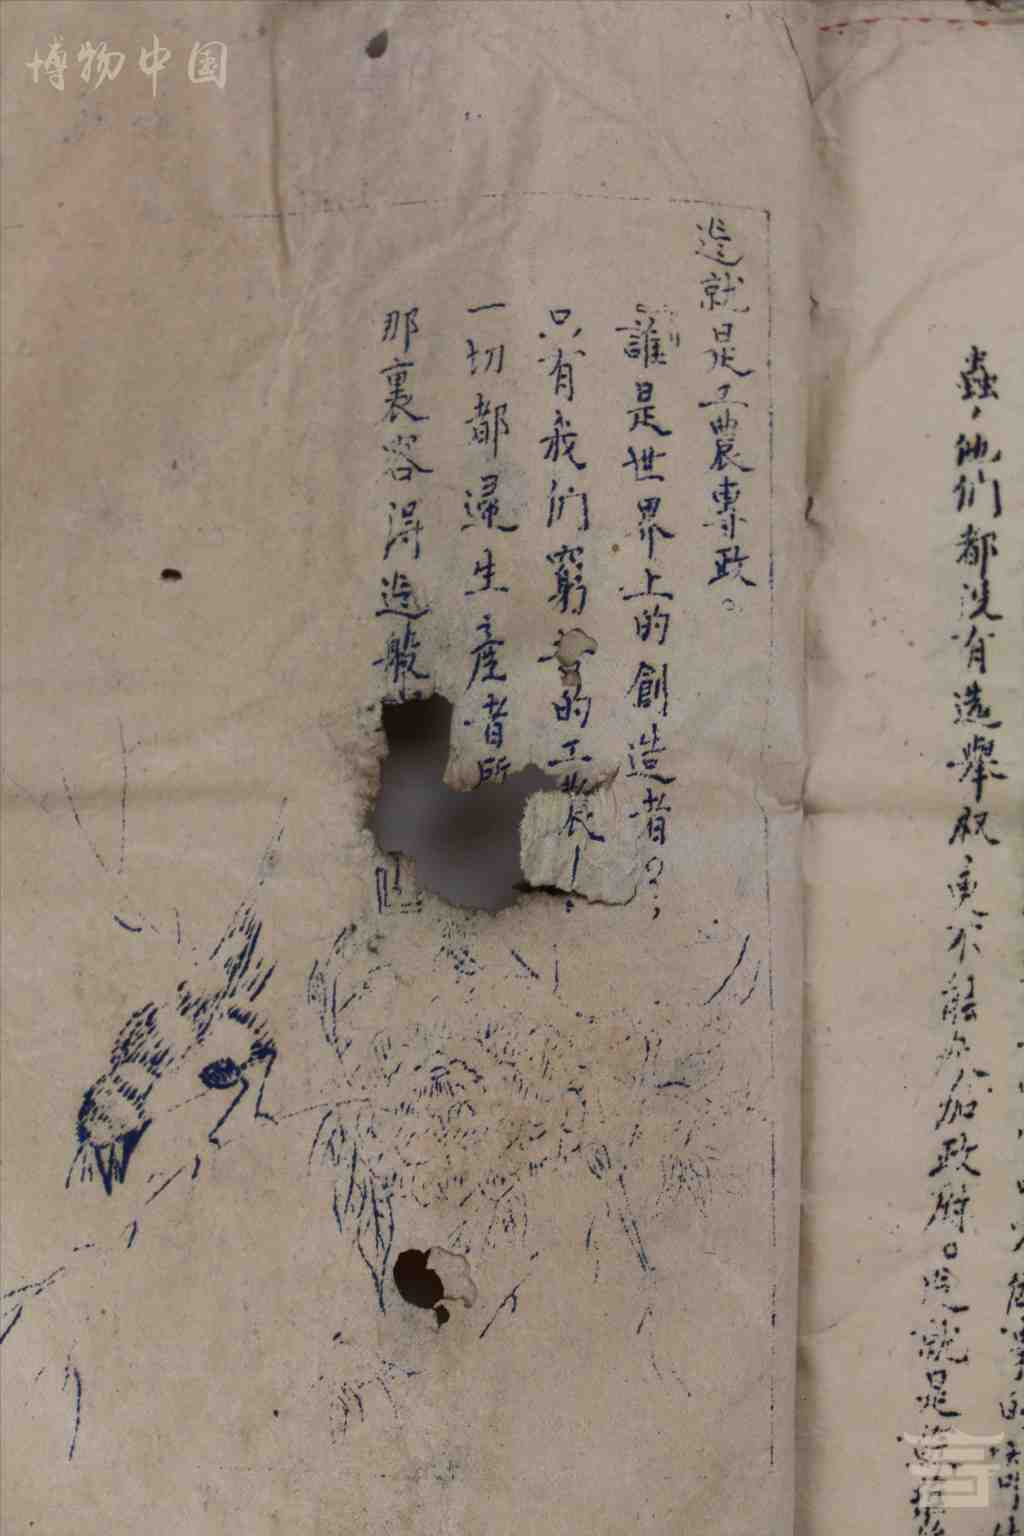 博物中国
蟲，他們都没有选舉权更不能参加政府。這就是
這就是工農專政。
誰是世界上的創造者？
只有我們窮苦的工農！
一切都歸生產者所
那裏容得這般